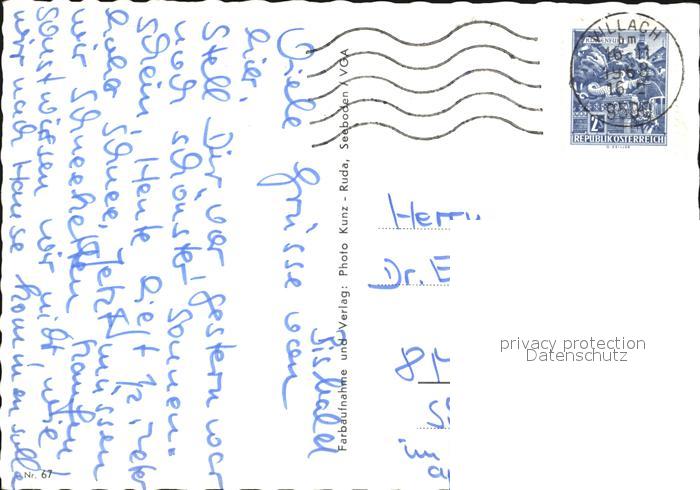 Viele Grüsse von
hier.
Stell Dir vor gestern war
noch schönster Sonnen-
schein Heute liegt ½ Meter
hoher Schnee, Jetzt müssen
wir Schneeketten kaufen
sonst wissen wir nicht wie
wir nach Hause kommen sollen
Farbaufnahme und Verlag: Photo Kunz - Ruda, Seeboden / VGA
Nr. 67
VILLACH
9500
2
REPUBLIK ÖSTERREICH
Herrn
Dr. E
privacy protection
Datenschutz